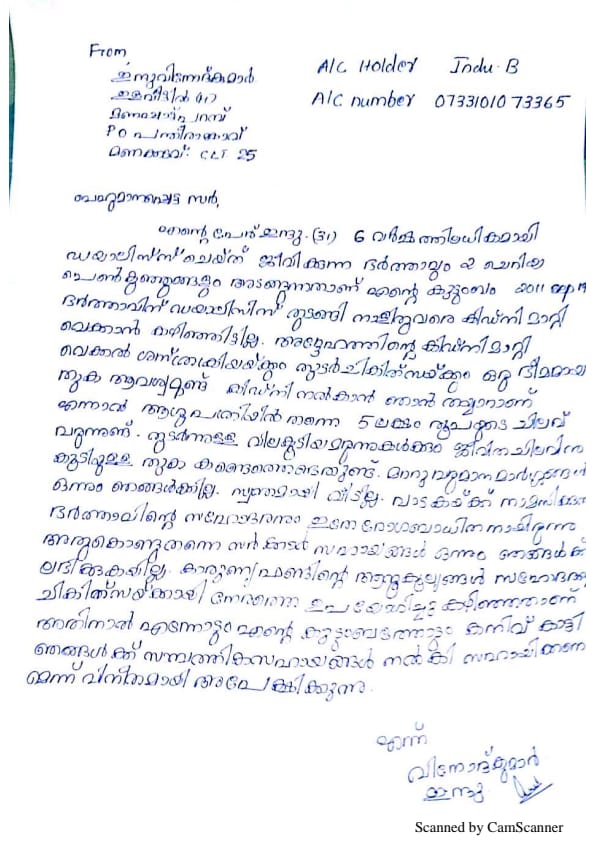 From
ഇന്ദുവിനോദ്കുമാർ
ഇളവീട്ടിൽ (H)
മണക്കടവ് പറമ്പ്
PO പന്തീരാങ്കാവ്
മണക്കടവ്: CLT 25
A/C Holder Indu. B
A/C number 07331010 73365
ബഹുമാനപ്പെട്ട സർ,
എന്റെ പേര് ഇന്ദു. (31) 6 വർഷത്തിലധികമായി
ഡയാലിസ്സ് ചെയ്ത് ജീവിക്കുന്ന ഭർത്താവും 2 ചെറിയ
പെൺകുഞ്ഞുങ്ങളും അടങ്ങുന്നതാണ് എന്റെ കുടുംബം 2011 sep 19
ഭർത്താവിന് ഡയാലിസിസ് തുടങ്ങി നാളിതുവരെ കിഡ്നി മാറ്റി
വെക്കാൻ കഴിഞ്ഞിട്ടില്ല. അദ്ദേഹത്തിന്റെ കിഡ്നി മാറ്റി
വെക്കൽ ശസ്ത്രക്രിയയ്ക്കും തുടർചികിത്സയ്ക്കും ഒരു ഭീമമായ
തുക ആവശ്യമുണ്ട് കിഡ്നി നൽകാൻ ഞാൻ തയ്യാറാണ്
എന്നാൽ ആശുപത്രിയിൽ തന്നെ 5 ലക്ഷം രൂപയുടെ ചിലവ്
വരുന്നുണ്ട്. തുടർന്നുള്ള വിലകൂടിയ മരുന്നുകൾക്കും ജീവിത ചിലവിനും
കൂടിയുള്ള തുക കണ്ടെത്തേണ്ടതുണ്ട്. മാറു വരുമാന മാർഗ്ഗങ്ങൾ
ഒന്നും ഞങ്ങൾക്കില്ല. സ്വന്തമായി വീടില്ല. വാടകയ്ക്ക്
ഭർത്താവിന്റെ സഹോദരനും ഇതേ രോഗബാധിതനായിരുന്നു
അതുകൊണ്ടുതന്നെ സർക്കാർ സഹായങ്ങൾ ഒന്നും ഞങ്ങൾക്ക്
ലഭിക്കുകയില്ല. കാരുണ്യഫണ്ടിന്റെ ആനുകൂല്യങ്ങൾ
ചികിത്സയ്ക്കായി നേരത്തെ ഉപയോഗിച്ചു കഴിഞ്ഞതാണ്
അതിനാൽ എന്നോടും എന്റെ കുടുംബത്തോടും കനിവ് കാട്ടി
ഞങ്ങൾക്ക് സാമ്പത്തികസഹായങ്ങൾ നൽകി സഹായിക്കണ
മെന്ന് വിനീതമായി അപേക്ഷിക്കുന്നു.
എന്ന്
വിനോദ്കുമാർ
ഇന്ദു
Scanned by CamScanner